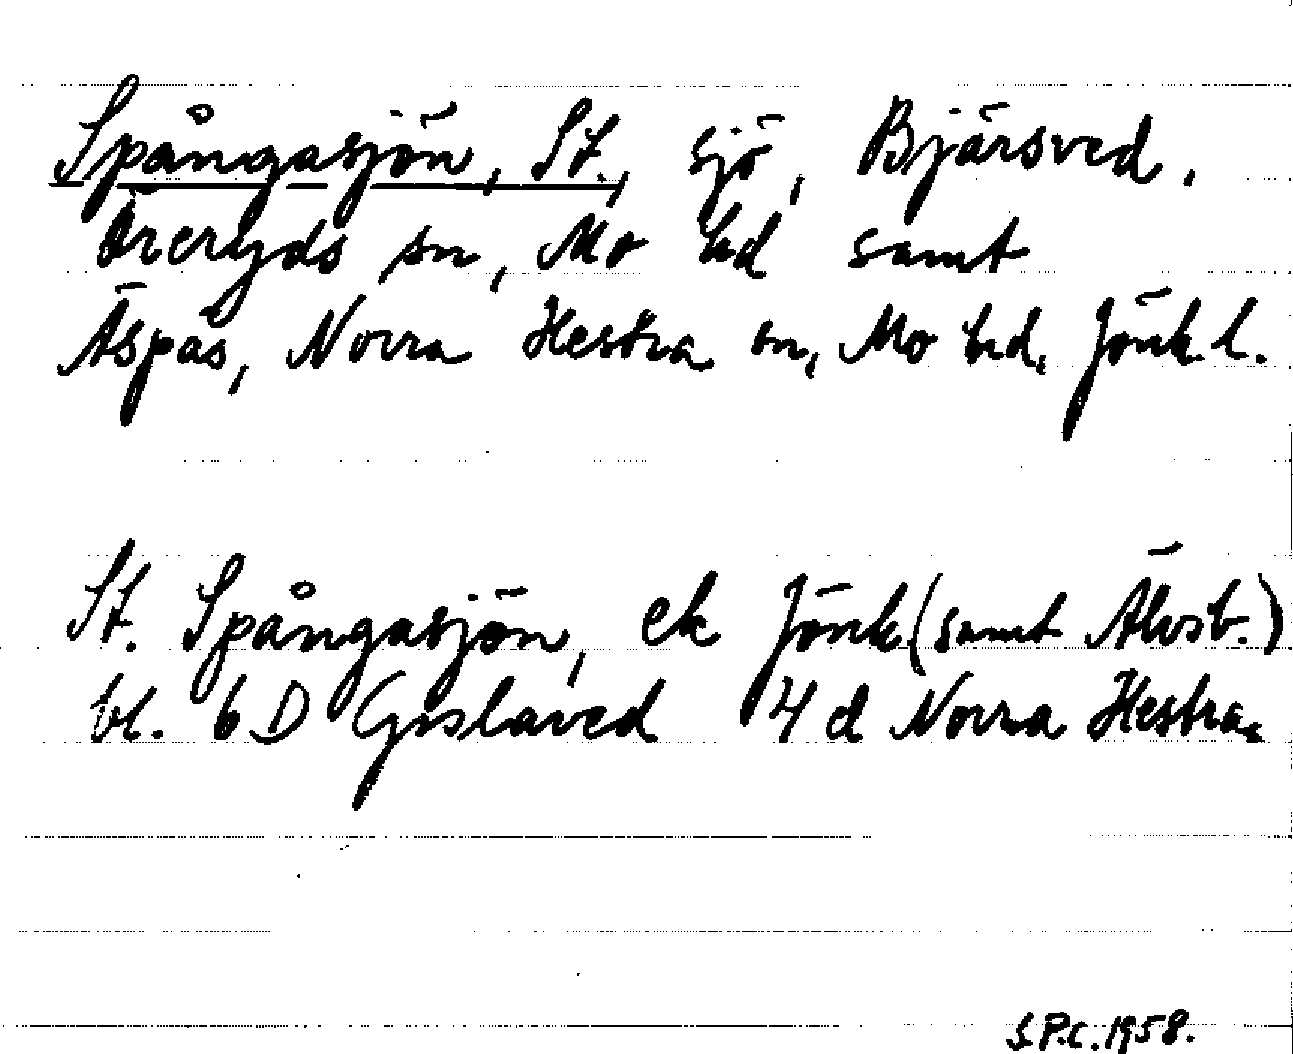 Spångasjön, St., sjö, Bjärsved,
Öreryds sn, Mo hd samt
Äspås, Norra Hestra sn, Mo hd, Jönk. l.
St. Spångasjön, ek Jönk (samt Älvsb.)
bl. 6 D Gislaved 4 d Norra Hestra.
S.P.C. 1958.